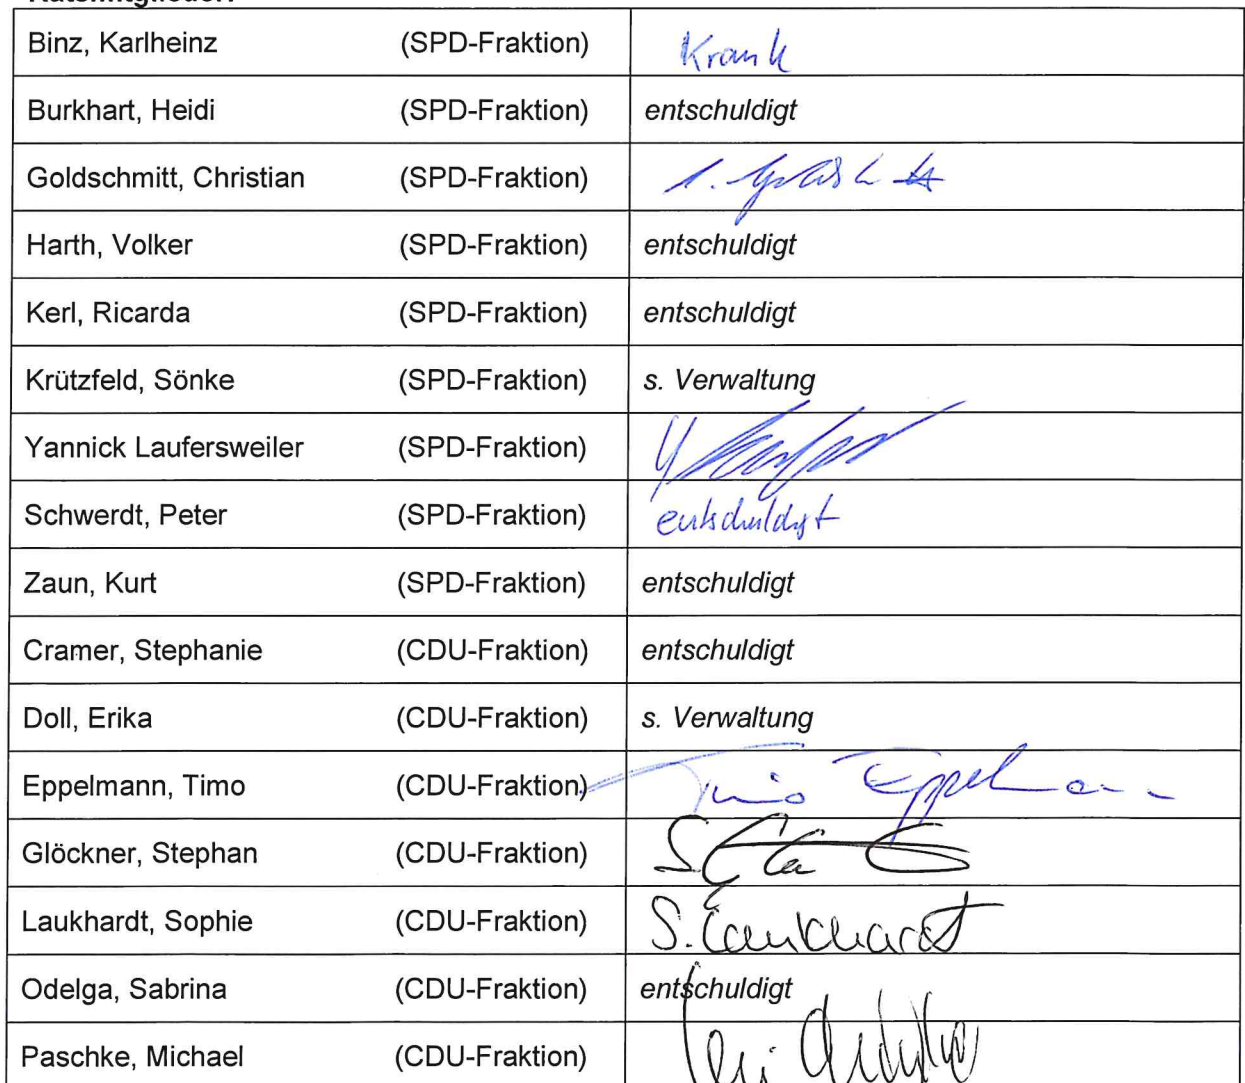 Binz, Karlheinz (SPD-Fraktion) Krank
Burkhart, Heidi (SPD-Fraktion) entschuldigt
Goldschmitt, Christian (SPD-Fraktion)
Harth, Volker (SPD-Fraktion) entschuldigt
Kerl, Ricarda (SPD-Fraktion) entschuldigt
Krützfeld, Sönke (SPD-Fraktion) s. Verwaltung
Yannick Laufersweiler (SPD-Fraktion)
Schwerdt, Peter (SPD-Fraktion) entschuldigt
Zaun, Kurt (SPD-Fraktion) entschuldigt
Cramer, Stephanie (CDU-Fraktion) entschuldigt
Doll, Erika (CDU-Fraktion) s. Verwaltung
Eppelmann, Timo (CDU-Fraktion) Timo Eppelmann
Glöckner, Stephan (CDU-Fraktion)
Laukhardt, Sophie (CDU-Fraktion) S. Laukhardt
Odelga, Sabrina (CDU-Fraktion) entschuldigt
Paschke, Michael (CDU-Fraktion)